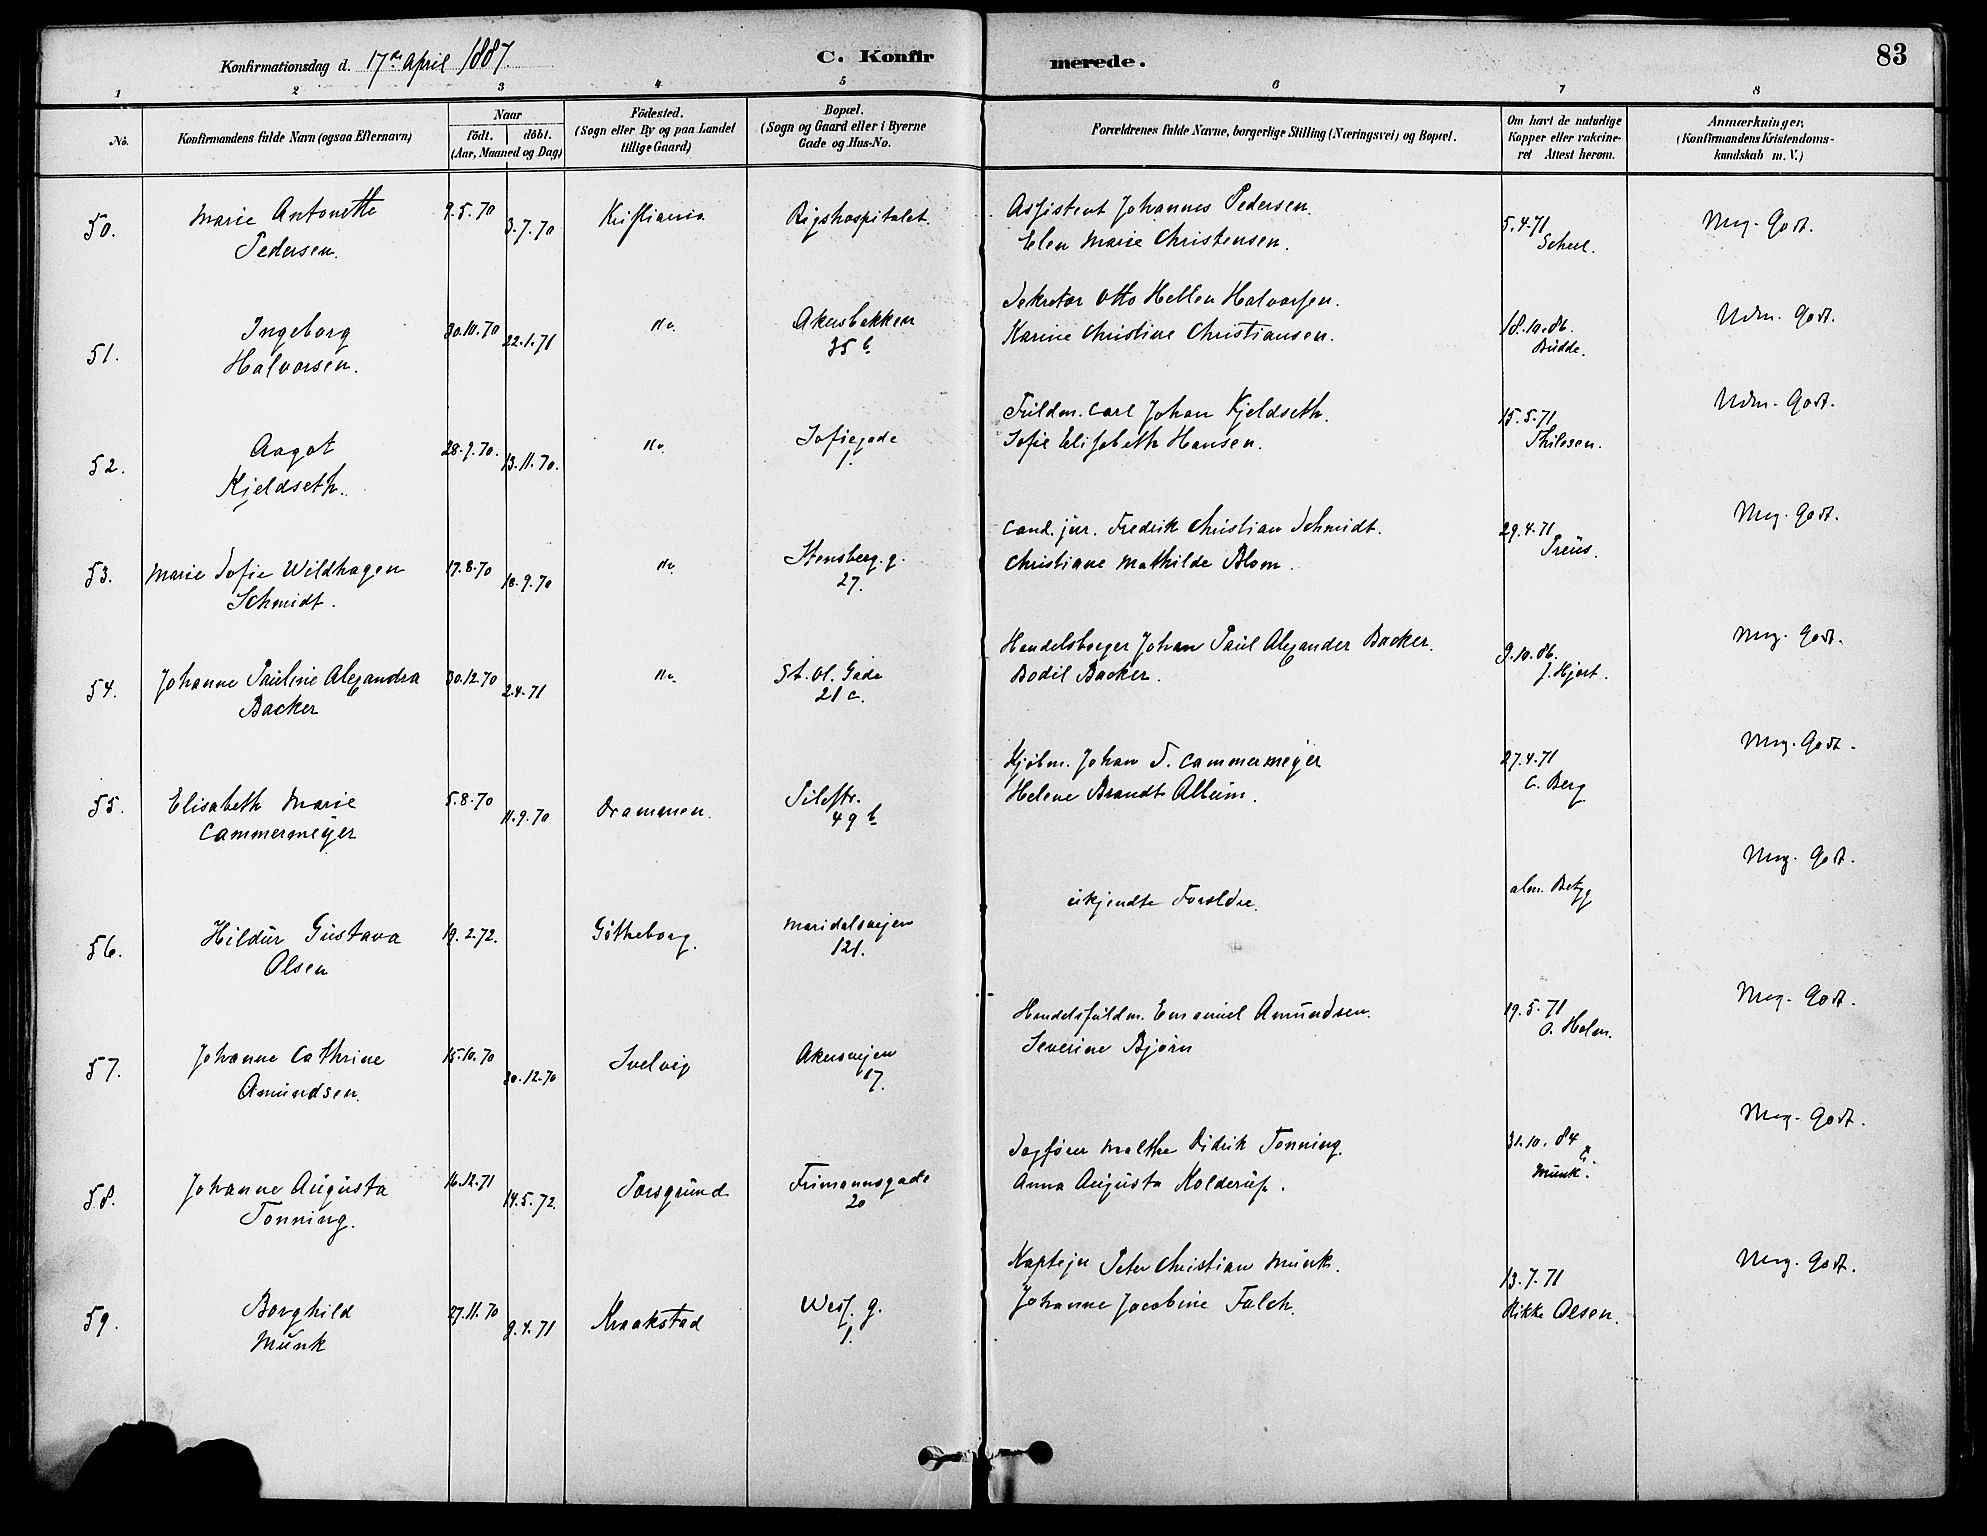 Konfirmationsdag d. 17de April 1887. C. Konfirmerede. 83
1 2 3 4 5 6 7 8
No.
Konfirmandens fulde Navn (ogsaa Efternavn)
Naar
födt. döbt.
(Aar, Maaned og Dag)
Födested.
(Sogn eller By og paa Landet
tillige Gaard)
Bopæl.
(Sogn og Gaard eller i Byerne
Gade og Hus-No.
Forældrenes fulde Navne, borgerlige Stilling (Næringsvei) og Bopæl.
Om havt de naturlige
Kopper eller vakcine-
ret Attest herom.
Anmærkninger,
(Konfirmandens Kristendoms-
kundskab m. V.)
50. Marie Antonette
Pedersen.
9.5.70 3.7.70 Kristiania Rigshospitalet.
Assistent Johannes Pedersen.
Elen Marie Christensen.
5.4.71
Scheel.
Meg. Godt.
51. Ingeborg
Halvorsen.
30.10.70 22.1.71 do. Akersbakken
35 b
Sekretær Otto Hellen Halvorsen.
Karine Christine Christiansen.
18.10.86.
Budde.
Udm. Godt.
52. Aagot
Kjeldseth.
28.9.70. 13.11.70. do. Sofiegade
1.
Fuldm. Carl Johan Kjeldseth.
Sofie Elisabeth Hansen.
15.5.71
Thilesen.
Udm. Godt.
53. Marie Sofie Wildhagen
Schmidt.
17.8.70 18.9.70 do. Stensberg. g.
27.
Cand. jur. Fredrik Christian Schmidt.
Christiane Mathilde Blom.
29.4.71
Preus.
Meg. Godt.
54. Johanne Pauline Alexandra
Backer
30.12.70 2.4.71 do. St. Ol. Gade
21 c.
Handelsborger Johan Paul Alexander Backer.
Bodil Backer.
9.10.86.
J. Hjort.
Meg. Godt.
55. Elisabeth Marie
Cammermeyer
5.8.70 11.9.70 Drammen. Pilestr.
49 b
Kjøbm. Johan S. Cammermeyer
Helene Brandt Alleim.
27.4.71
C. Berg
Meg. Godt.
56. Hildur Gustava
Olsen
19.2.72. Götheborg. Maridalsvejen
121.
ukjendte Forældre.
alm. Betyg
Meg. Godt.
57. Johanne Cathrine
Amundsen.
15.10.70 30.12.70 Svelvig Akersvejen
17.
Handelsfuldm. Emanuel Amundsen.
Severine Bjørn
19.5.71
O. Holm.
Meg. Godt.
58. Johanne Augusta
Tonning.
16.12.71 14.5.72. Porsgrund Frimannsgade
20
Sagfører Malthe Didrik Tonning.
Anna Augusta Kolderup.
31.10.84
Munk.
Meg. Godt.
59. Borghild
Munk
27.11.70 9.4.71 Kraakstad Wess. g.
1.
Kaptejn Peter Christian Munk.
Johanne Jacobine Falch.
13.7.71
Rikke Olsen.
Meg. Godt.